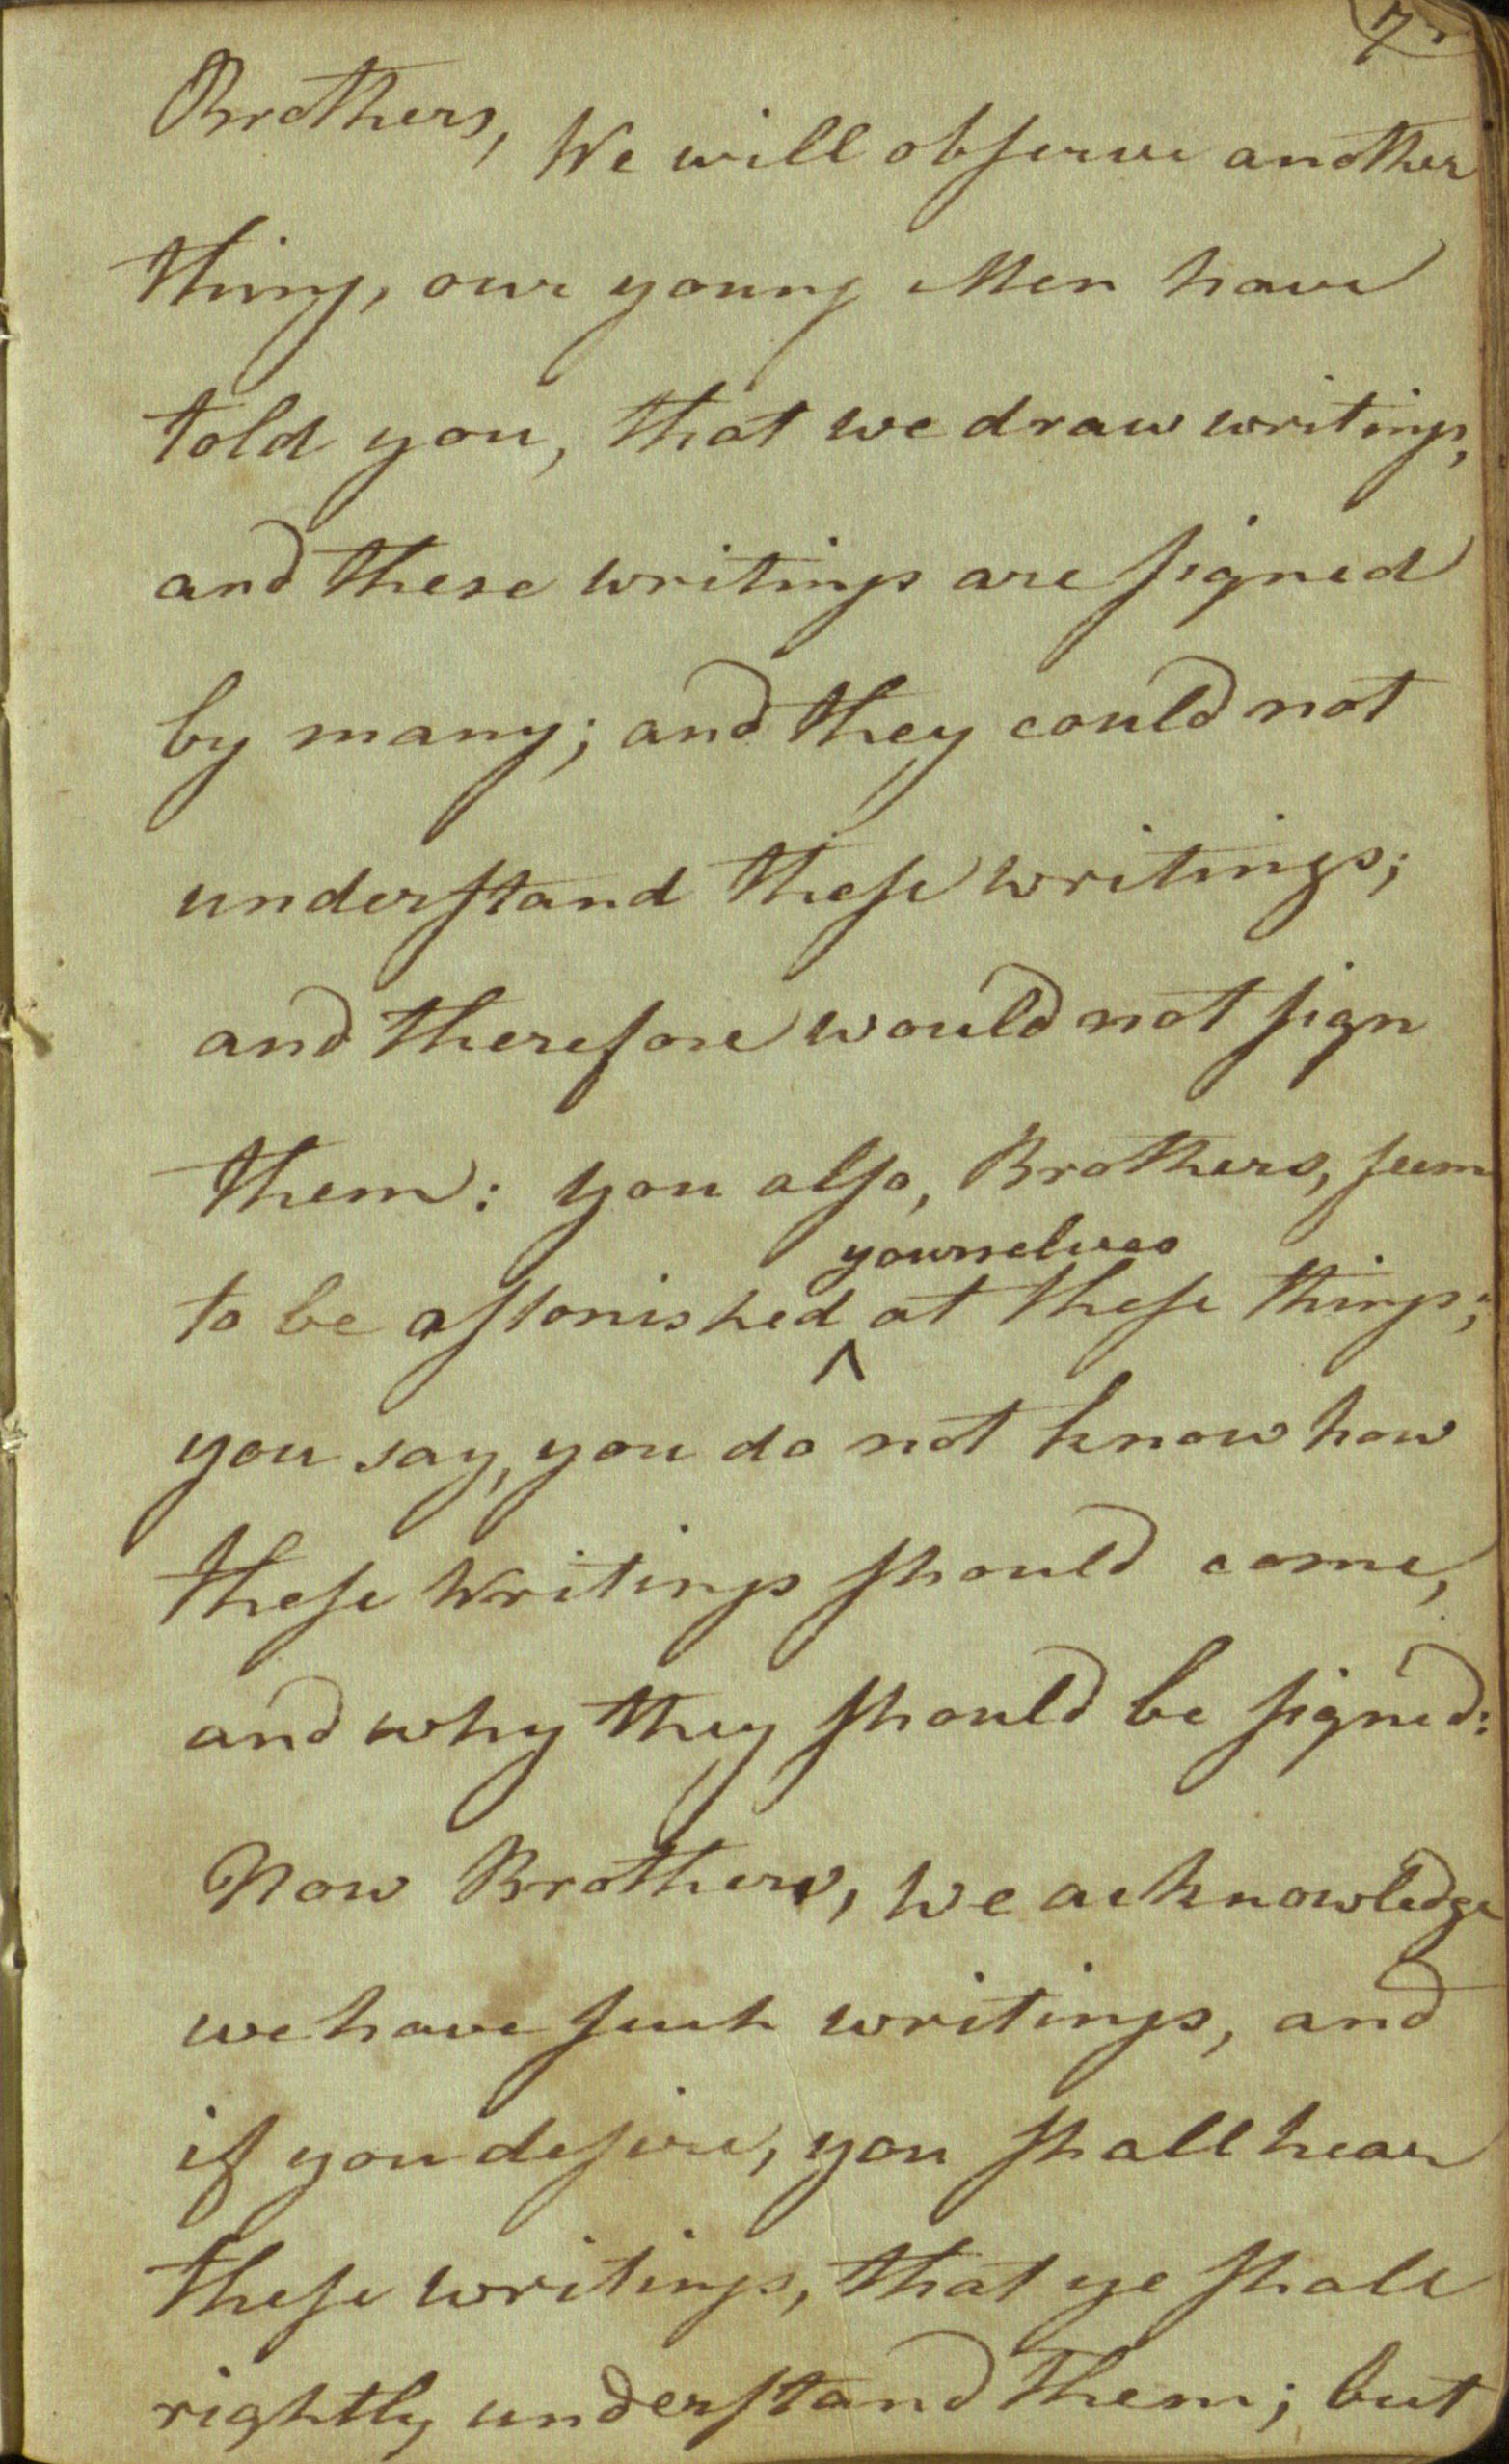 7
Brothers, We will obſerve another
thing, our young Men have
told you, that we draw writings,
and these writings are ſigned
by many; and they could not
underſtand theſe writings;
and therefore would not ſign
them: you alſo, Brothers, ſeem
yourselves
to be aſtonished ^ at theſe things;
you say, you do not know how
theſe Writings ſhould come,
and why they ſhould be ſigned:
Now Brothers, we acknowledge
we have ſuch writings, and
if you deſire, you ſhall hear
theſe writings, that ye ſhall
rightly underſtand them; but